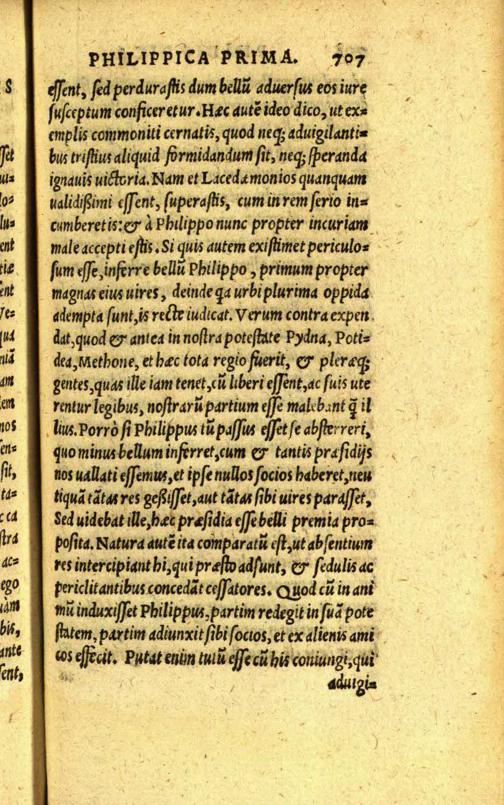 PHILIPPICA PRIMA. 707
essent, sed perdurastis dum bellū aduersus eos iure
susceptum conficeretur. Hæc autē ideo dico, ut ex=
emplis commoniti cernatis, quod neq; aduigilanti=
bus tristius aliquid formidandum sit, neq; speranda
ignauis uictoria. Nam et Lacedæmonios quanquam
ualidißimi essent, superastis, cum in rem serio in=
cumberetis: & à Philippo nunc propter incuriam
male accepti estis. Si quis autem existimet periculo=
sum esse, inferre bellū Philippo, primum propter
magnas eius uires, deinde qa urbi plurima oppida
adempta sunt, is recte iudicat. Verum contra expen
dat, quod & antea in nostra potestate Pydna, Poti=
dea, Methone, et hæc tota regio fuerit, & pleræq;
gentes, quas ille iam tenet, cū liberi essent, ac suis ute
rentur legibus, nostrarū partium esse malebant q̄ il
lius. Porrò si Philippus tū passus esset se absterreri,
quo minus bellum inferret, cum & tantis præsidijs
nos uallati essemus, et ipse nullos socios haberet, neu
tiquā tātas res geßisset, aut tātas sibi uires parasset,
Sed uidebat ille, hæc præsidia esse belli premia pro=
posita. Natura autē ita comparatū est, ut absentium
res intercipiant hi, qui præsto adsunt, & sedulis ac
periclitantibus concedāt cessatores. Quod cū in ani
mū induxisset Philippus, partim redegit in suā pote
statem, partim adiunxit sibi socios, et ex alienis ami
cos effecit. Putat enim tutū esse cū his coniungi, qui
aduigi=
S
sset
ui=
lo=
lu=
ent
tiæ
ent
Ve=
qua
niā
am
lem
nos
en=
sit,
ta=
c ca
stra
ac=
ego
iàm
bis,
ante
sent,